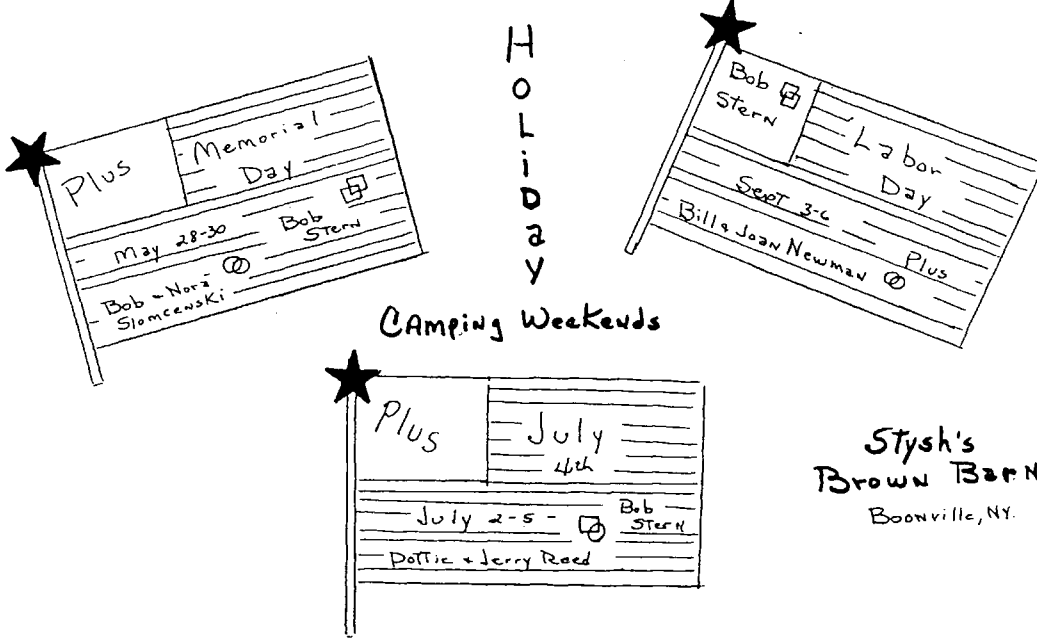 HOLiDay
CAmping Weekends
Plus
Memorial
Day
May 28-30
Bob
Stern
Bob - Nora
Slomcenski
Bob
Stern
Labor
Day
Sept 3-6
Plus
Bill & Joan Newman
Plus
July
4th
July 2-5 -
Bob
Stern
Dottie + Jerry Reed
Stysh's
Brown Barn
Boonville, NY.